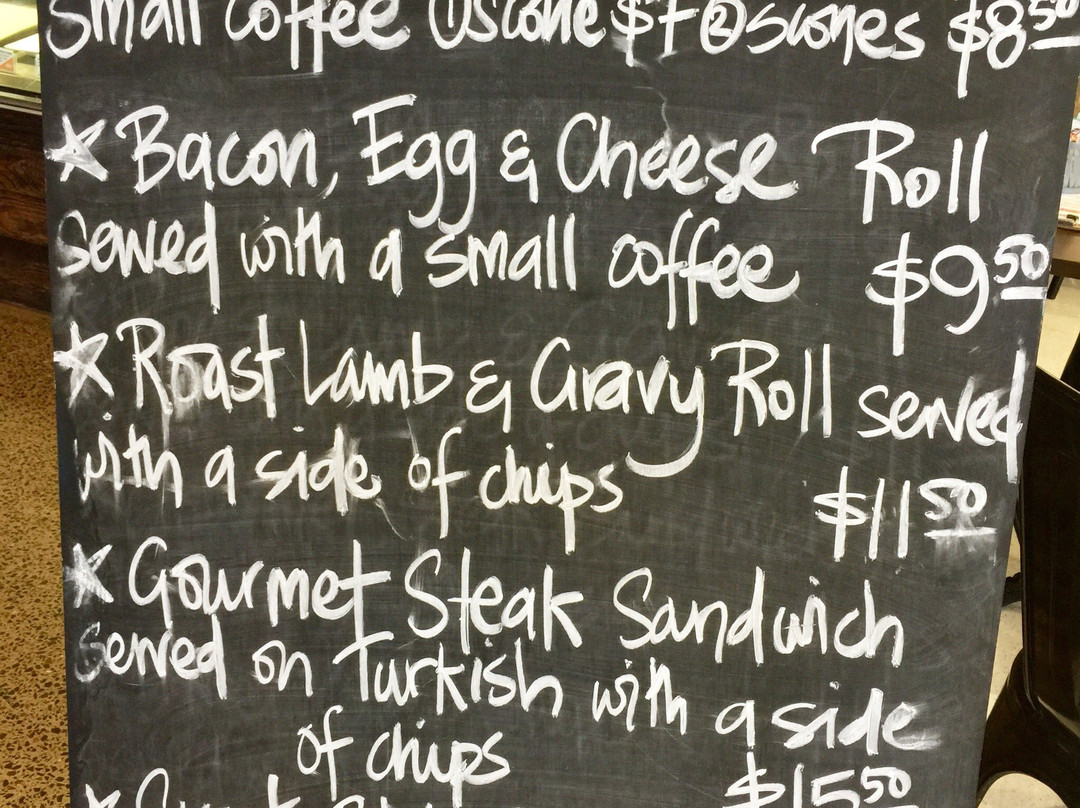 small coffee ① scone $7 ② scones $8 50
★ Bacon, Egg & Cheese Roll
served with a small coffee $9 50
★ Roast Lamb & Gravy Roll served
with a side of chips $11 50
★ Gourmet Steak Sandwich
served on Turkish with a side
of chips $15 50
★